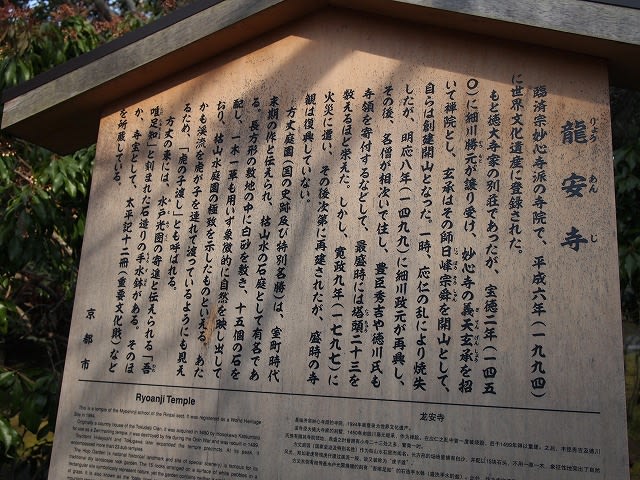 龍安寺
りょうあんじ
臨済宗妙心寺派の寺院で、平成六年(一九九四)
に世界文化遺産に登録された。
もと徳大寺家の別荘であったが、宝徳二年(一四五
〇)に細川勝元が譲り受け、妙心寺の義天玄承を招
いて禅院とし、玄承はその師日峰宗舜を開山として、
自らは創建開山となった。一時、応仁の乱により焼失
したが、明応八年(一四九九)に細川政元が再興し、
その後、名僧が相次いで住し、豊臣秀吉や徳川氏も
寺領を寄付するなどして、最盛時には塔頭二十三を
数えるほど栄えた。しかし、寛政九年(一七九七)に
火災に遭い、その後次第に再建されたが、盛時の寺
観は復興していない。
方丈庭園(国の史跡及び特別名勝)は、室町時代
末期の作と伝えられ、枯山水の石庭として有名であ
る。長方形の敷地の中に白砂を敷き、十五個の石を
配し、一木一草も用いず象徴的に自然を映し出して
おり、枯山水庭園の極致を示したものといえる。あた
かも渓流を虎が子を連れて渡っているようにも見え
るため、「虎の子渡し」とも呼ばれる。
方丈の東には、水戸光圀の寄進と伝えられる「吾
唯足知」と刻まれた石造りの手水鉢がある。そのほ
か、寺宝として、太平記十二冊(重要文化財)など
を所蔵している。
京都市
Ryoanji Temple
This is a temple of the Myoshinji school of the Rinzai sect. It was registered as a World Heritage
Site in 1994.
Originally a country house of the Tokudaiji Clan, it was acquired in 1450 by Hosokawa Katsumoto
for use as a Zen training temple. It was destroyed by fire during the Onin War and was rebuilt in 1499.
Toyotomi Hideyoshi and Tokugawa later rewarded the temple precincts. At its peak, it
encompassed more than 23 sub-temples.
The Hojo Garden (a national historical landmark and site of special scenery) is famous for its
龙安寺